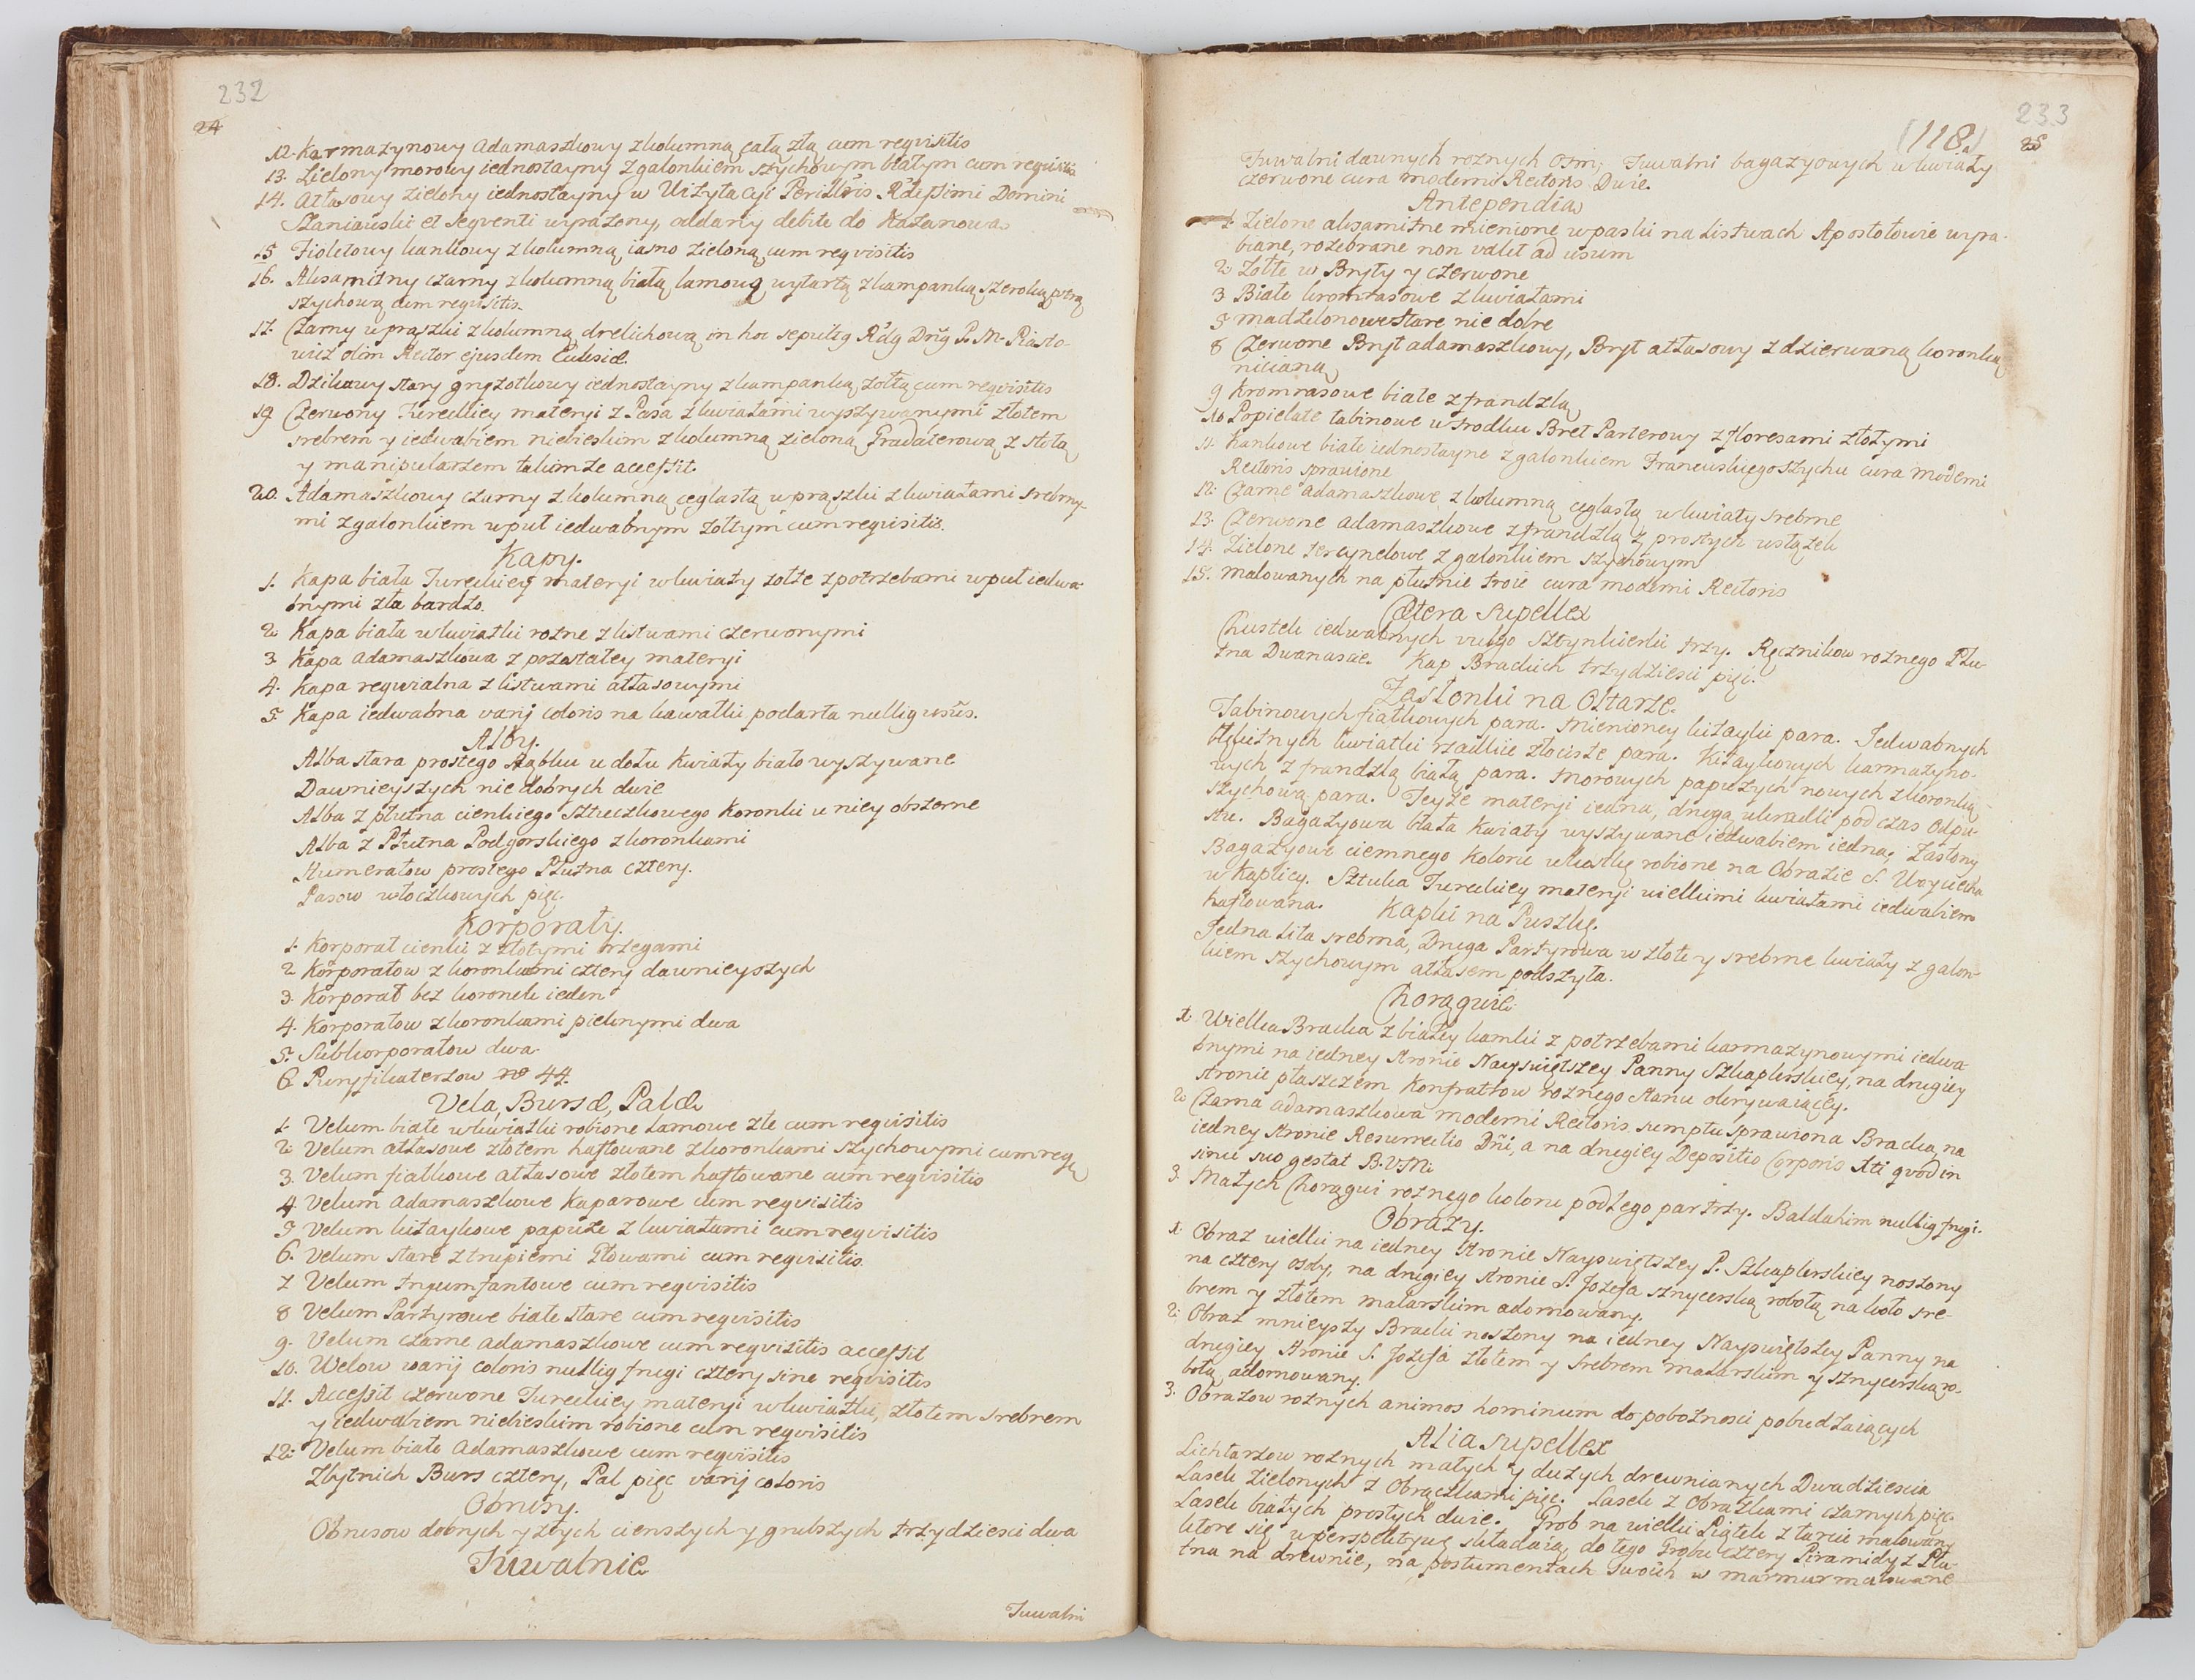 232
24
12. Karmazynowy adamaszkowy z kolumną całą złą cum reqvisitis
13. Zielony morowy iednostayny z galonkiem szychowym białym cum reqvisitis
14. Atłasowy zielony iednostayny w Uizytacyi Perillris Rdissimi Domini
Staniauski et seqventi wyrażony, oddany debite do Kazanowa
15 Fioletowy kankowy z kolumną iasno zieloną cum reqvisitis
16. Aksamitny czarny z kolumną białą lamową wytartą z kampanką szeroką
szychową cum reqvisitis.
17. Czarny w prązki z kolumną drelichową in hoc sepultg Rdg Dng P. M.
wicz olim Rector ejusdem Eclesiæ.
18. Dzikawy stary gryzotkowy iednostayny z kampanką zołtą cum reqvisitis
19 Czerwony Tureckiey materyi z Pasa z kwiatami wyszywanymi złotem
srebrem y iedwabiem niebieskim z kolumną zieloną Gradaterową z stołą
y manipularzem takimze accessit.
20. Adamaszkowy czarny z kolumną ceglastą w prązki z kwiatami srebrny-
mi z galonkiem wpuł iedwabnym zołtym cum reqvisitis.
Kapy.
1. Kapa biała Tureckiey materyi w kwiaty zołte z potrzebami wpuł iedwa-
bnymi zła bardzo.
2 Kapa biała w kwiatki rozne z listwami czerwonymi
3 Kapa adamaszkowa z pozostałey materyi
4. Kapa reqvialna z listwami atłasowymi
5. Kapa iedwabna varij coloris na kawałki podarta nullig usus.
Alby.
Alba stara prostego rąbku u dołu kwiaty biało wyszywane
Dawnieyszych nie dobrych dwie
Alba z płutna cienkiego sztuczkowego koronki u niey obszerne
Alba z Płutna Podgorskiego z koronkami
Humerałow prostego Płutna cztery.
Pasow włoczkowych pięc.
Korporały.
1. Korporał cienki z złotymi brzegami
2 Korporałow z koronkami cztery dawnieyszych
3. Korporał bez koronek ieden
4. Korporałow z koronkami pieknymi dwa
5. Subkorporałow dwa.
6 Puryfikaterzow no 44.
Vela, Bursæ, Palæ
1. Velum białe w kwiatki robione lamowe złe cum reqvisitis
2 Velum atłasowe złotem haftowane z koronkami szychowymi cum reqg
3. Velum fiałkowe atłasowe złotem haftowane cum reqvisitis
4 Velum adamaszkowe kaparowe cum reqvisitis
5 Velum kitaykowe papuże z kwiatami cum reqvisitis
6. Velum stare z trupiemi Głowami cum reqvisitis.
7 Velum tryumfantowe cum reqvisitis
8 Velum Partyrowe białe stare cum reqvisitis
9. Velum czarne adamaszkowe cum reqvisitis accessit
10. Welow varij coloris nullig frugi cztery sine reqvisitis
11. Accessit czerwone Tureckiey materyi w kwiatki, złotem srebrem
y iedwabiem niebieskim robione cum reqvisitis
12. Velum białe adamaszkowe cum reqvisitis
Zbytnich Burs cztery, Pal pięc varij coloris
Obrusy.
Obrusow dobrych y złych cienszych y grubszych trzydziesci dwa
Tuwalnie
Tuwalni
233
(118)
25
Tuwalni dawnych roznych osm; Tuwalni bagazyowych w kwiaty
czerwone cura moderni Rectoris Dwie.
Antependia
1. Zielone aksamitne mienione w paski na Listwach Apostołowie wyra-
biane, rozebrane non valet ad usum
2 Zołte w Bryty y czerwone
3 Białe kromrasowe z kwiatami
5 madzelonowe stare nie dobre
8 Czerwone Bryt adamaszkowy, Bryt atłasowy z dzierwaną koronką
nicianą
9 Kromrasowe białe z frandzlą
10 Popielate tabinowe w srodku Bret Parterowy z floresami złotymi
11 Kankowe białe iednostayne z galonkiem Francuskiego szychu cura moderni
Rectoris sprawione
12. Czarne adamaszkowe z kolumną ceglastą w kwiaty srebrne
13. Czerwone adamaszkowe z frandzlą z prostych wstązek
14. Zielone tercynelowe z galonkiem szychowym
15. Malowanych na płutnie troie cura moderni Rectoris
Cætera supellex
Chustek iedwabnych vulgo sztynkierki trzy. Ręcznikow roznego Płu-
tna Dwanascie. Kap Brackich trzydziesci pięć.
Zasłonki na Ołtarze.
Tabinowych fiałkowych para. mienioney kitayki para. Jedwabnych
błękitnych kwiatki rzadkie złociste para. Kitaykowych karmazyno-
wych z frandzlą białą para. morowych papużych nowych z koronką
szychową para. Teyże materyi iedna, drugą ukradli pod czas Odpu-
stu. Bagazyowa biała kwiaty wyszywane iedwabiem iedna; Zasłony
Bagazyowe ciemnego koloru w kostkę robione na Obrazie S. Woyciecha
w Kaplicy. Sztuka Tureckiey materyi wielkimi kwiatami iedwabiem
haftowana. Kapki na Puszkę.
Jedna lita srebrna, Druga Partyrowa w złote y srebrne kwiaty z galon-
kiem szychowym atłasem podszyta.
Chorągwie.
1. Wielka Bracka z białey kamki z potrzebami karmazynowymi iedwa-
bnymi na iedney stronie Nayswiętszey Panny Szkaplerskiey, na drugiey
stronie płaszczem Konfratrow roznego stanu okrywaiącey.
2 Czarna adamaszkowa moderni Rectoris sumptu sprawiona Bracka, na
iedney stronie Resurrectio Dni, a na drugiey Depositio Corporis Xti qvod in
sinu suo gestat B.V.M.
3. Małych Chorągwi roznego koloru podłego par trzy. Baldakim nullig frugi.
Obrazy.
1. Obraz wielki na iedney stronie Nayswiętszey P. Szkaplerskiey noszony
na cztery osoby, na drugiey stronie S. Jozefa sznycerską robotą na koło sre-
brem y złotem malarskim adornowany.
2. Obraz mnieyszy Bracki noszony na iedney Nayswiętszey Panny na
drugiey stronie S. Jozefa złotem y srebrem malarskim y sznycerską ro-
botą adornowany.
3. Obrazow roznych animos hominum do pobożnosci pobudzaiących
Alia supellex
Lichtarzow roznych małych y dużych drewnianych Dwadziescia
Lasek zielonych z Obrączkami pięc. Lasek z Obrazkami czarnych pięc.
Lasek białych prostych dwie. Grob na wielki Piątek z tarcic malowany
ktore się w perspektywę składaią, do tego Grobu cztery Piramidy z Płu-
tna na drewnie, na postumentach swoich w marmur malowane